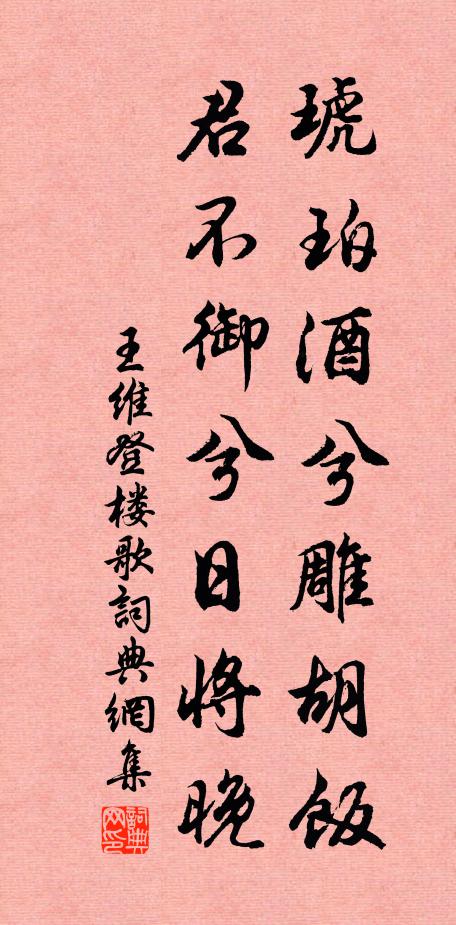 琥珀酒兮雕胡飯
君不御兮日將晚
王維登楼歌詞典網集
詞典
网印